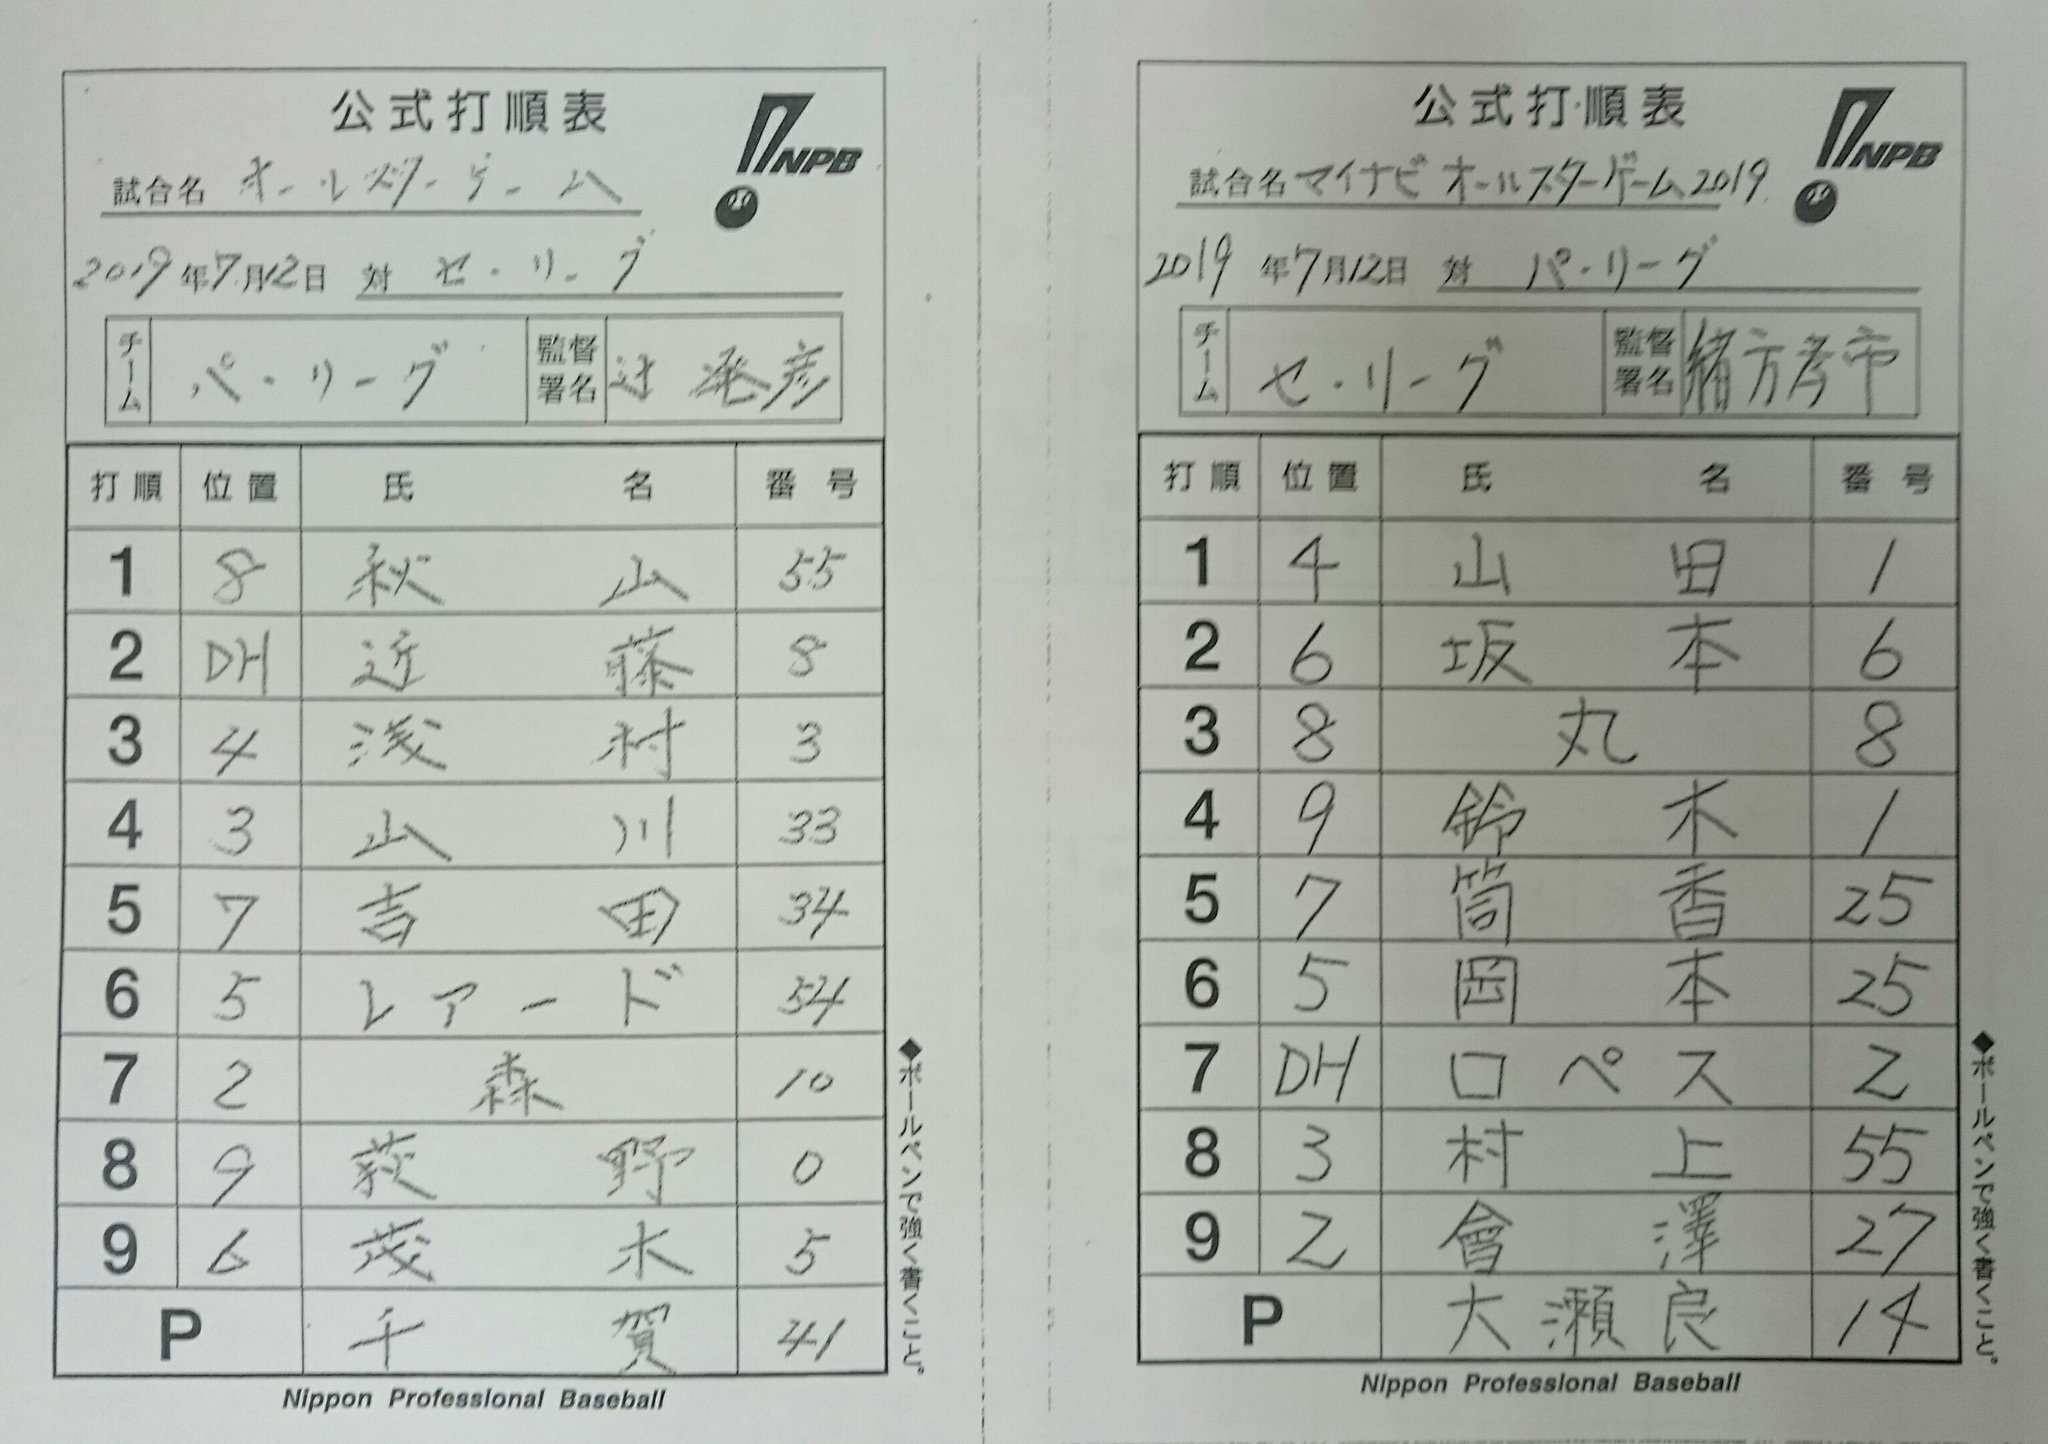 公式打順表
NPB
試合名 オールスターゲーム
2019年7月12日 対 セ・リーグ
チーム パ・リーグ 監督署名 辻 発彦
打順 位置 氏名 番号
1 8 秋山 55
2 DH 近藤 8
3 4 浅村 3
4 3 山川 33
5 7 吉田 34
6 5 レアード 54
7 2 森 10
8 9 荻野 0
9 6 茂木 5
P 千賀 41
◆ボールペンで強く書くこと。
Nippon Professional Baseball
公式打順表
NPB
試合名 マイナビオールスターゲーム2019
2019年7月12日 対 パ・リーグ
チーム セ・リーグ 監督署名 緒方孝市
打順 位置 氏名 番号
1 4 山田 1
2 6 坂本 6
3 8 丸 8
4 9 鈴木 1
5 7 筒香 25
6 5 岡本 25
7 DH ロペス 2
8 3 村上 55
9 2 會澤 27
P 大瀬良 14
◆ボールペンで強く書くこと。
Nippon Professional Baseball